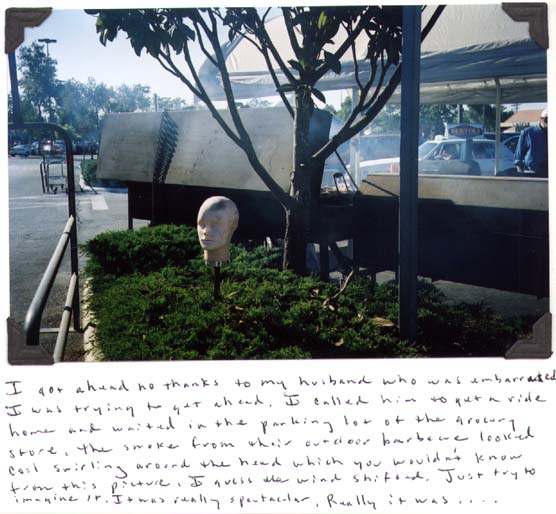 BERTOLI
I got ahead no thanks to my husband who was embarrased
I was trying to get ahead. I called him to get a ride
home and waited in the parking lot of the grocery
store, the smoke from their outdoor barbecue looked
cool swirling around the head which you wouldn't know
from this picture. I guess the wind shifted. Just try to
imagine it. It was really spectacular, Really it was....